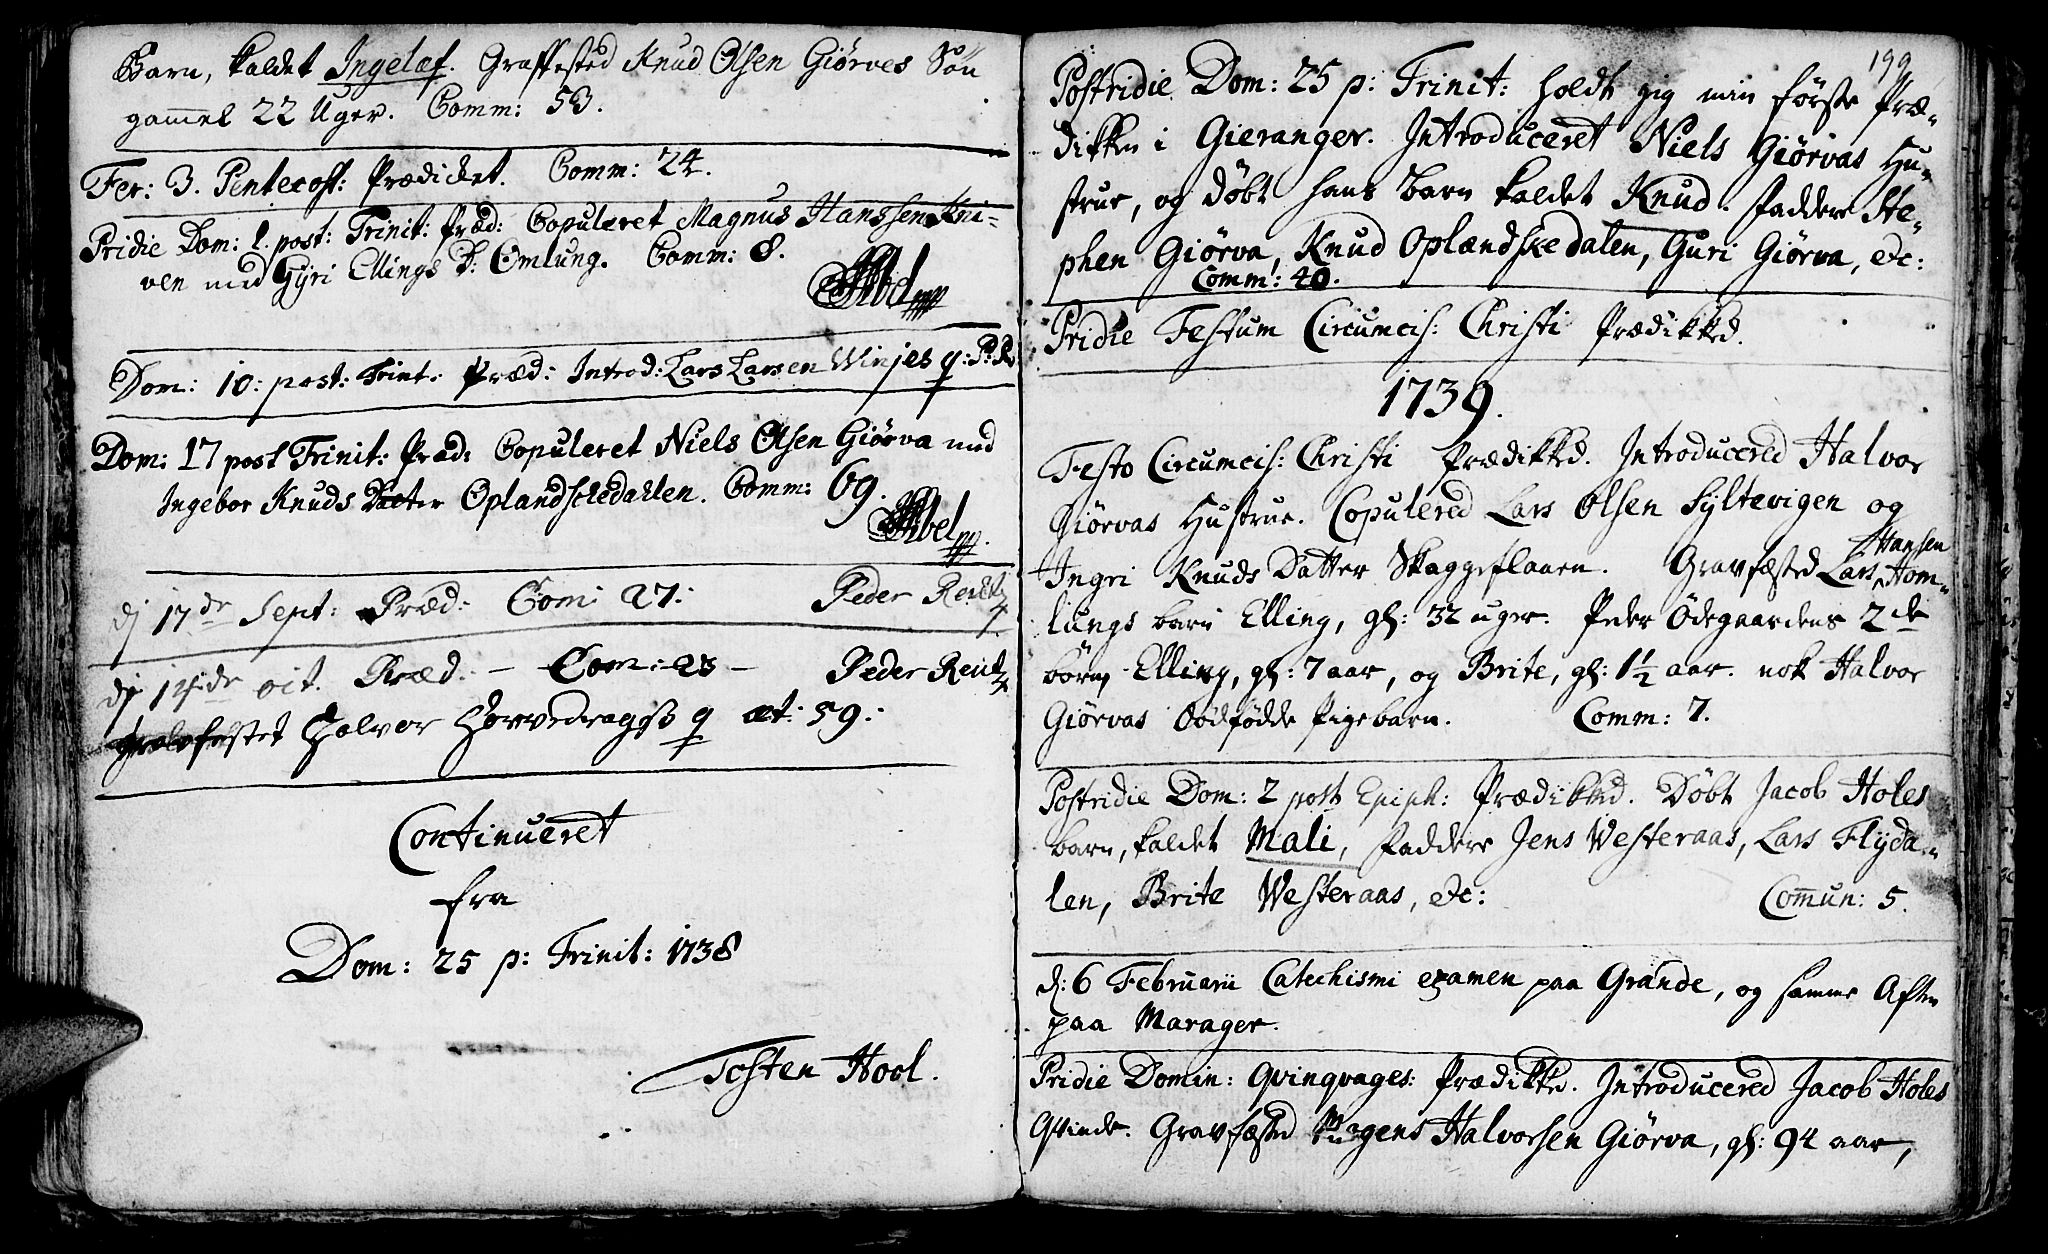 Barn, kaldet Ingelaf. Graffested Knud Olsen Giørves Søn
gammel 22 Uger. Comm: 53.
Fer: 3. Pentecost: Prædicket. Comm: 24.
Pridie Dom: 1. post: Trinit: Præd: Copuleret Magnus Hanssen Kni-
ven med Gyri Ellings D: Omlung. Comm: 8.
Abel
Dom: 10: post: Trint: Præd: Introd: Lars Larsen Winjes q: P: R
Dom: 17 post Trinit: Præd: Copuleret Niels Olsen Giørva med
Ingebor Knuds Datter Oplandschedahlen. Comm: 69.
Abel
dj 17de Sept: Præd: Com: 27: Peder Reutz
dj 14de oct. Præd: – Com: 23 – Peder Reutz
gravfæstet Halvor q æt: 59:
Continueret
fra
Dom: 25 p: Trinit: 1738
Tosten Hool.
199
Postridie Dom: 25 p: Trinit: holdt jeg min første Præ-
dikken i Gieranger. Introduceret Niels Giørvas Hu-
strue, og døbt hans barn kaldet Knud. Faddere Ste-
phen Giørva, Knud Oplandskedalen, Guri Giørva, etc:
Comm: 40.
Pridie Festum Circumcis: Christi Prædikked.
1739.
Festo Circumcis: Christi Prædikked. Introducered Halvor
Giørvas Hustrue. Copulered Lars Olsen Syltevigen og
Ingri Knuds Datter Skaggeflaaen. Gravfæsted Lars Hansen Hom-
lungs barn Elling, gl: 32 uger. Peder Ødegaardens 2de
børn Elling, gl: 7 aar, og Brite, gl: 1½ aar. nok Halvor
Giørvas dødfødde Pigebarn. Comm: 7.
Postridie Dom: 2 post Epiph: Prædikked. Døbt Jacob Holes
barn, kaldet Mali, Faddere Jens Westeraas, Lars Flyda-
len, Brite Westeraas, etc: Commun: 5.
d: 6 Februarii Catechismi examen paa Grande, og samme Aften
paa Marager.
Pridie Domin: Qvinqvages: Prædikked. Introducered Jacob Holes
Qvinde. Gravfæsted Mogens Halvorsen Giørva, gl: 94 aar,